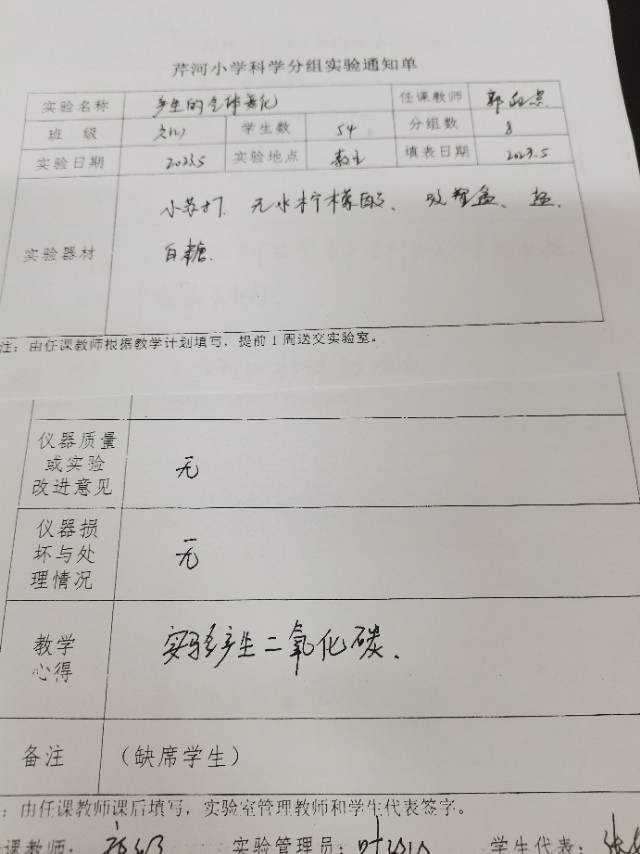 芹河小学科学分组实验通知单
实验名称 产生的气体变化 任课教师 郭
班 级 学生数 54 分组数 8
实验日期 2023.5 实验地点 教室 填表日期 2023.5
小苏打、无水柠檬酸、玻璃盒、盐、
实验器材 白糖.
注：由任课教师根据教学计划填写，提前1周送交实验室。
仪器质量
或实验
改进意见 无
仪器损
坏与处
理情况 无
教学
心得 实验产生二氧化碳.
备注 （缺席学生）
：由任课教师课后填写，实验室管理教师和学生代表签字。
课教师： 实验管理员：叶 学生代表：张